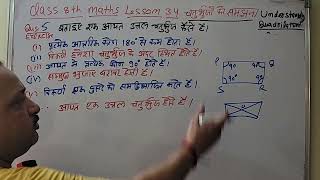 Class 8th maths Lesson 3.4 चतुर्भुजों को समझना/Understanding
Quadrilateral
Ques 5 बताइए एक आयत उत्तल चतुर्भुज कैसे है।
(i) प्रत्येक आन्तरिक कोण 180° से कम होता है।
(ii) विकर्ण हमेशा चतुर्भुज के अंदर स्थित होते हैं।
(iii) आयत में प्रत्येक कोण 90° होता है।
(iv) सम्मुख भुजाएं बराबर होती हैं।
(v) विकर्ण एक दूसरे को समद्विभाजित करते हैं।
∴ आयत एक उत्तल चतुर्भुज होते हैं।
P
90
90
90°
90
S
R